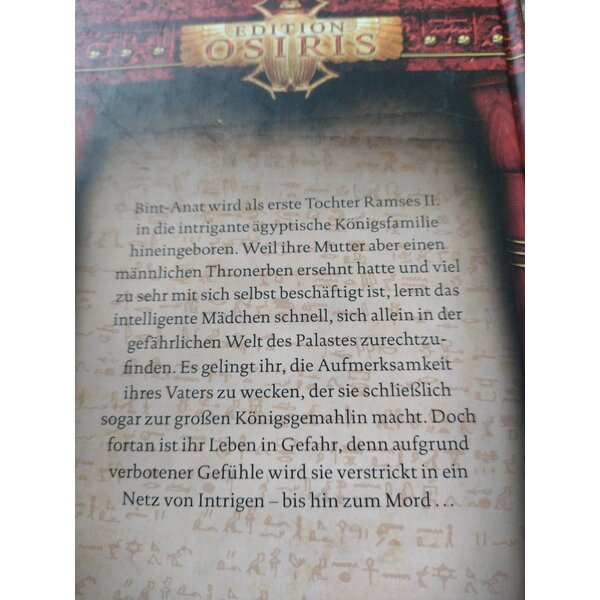 EDITION
OSIRIS
Bint-Anat wird als erste Tochter Ramses II.
in die intrigante ägyptische Königsfamilie
hineingeboren. Weil ihre Mutter aber einen
männlichen Thronerben ersehnt hatte und viel
zu sehr mit sich selbst beschäftigt ist, lernt das
intelligente Mädchen schnell, sich allein in der
gefährlichen Welt des Palastes zurechtzu-
finden. Es gelingt ihr, die Aufmerksamkeit
ihres Vaters zu wecken, der sie schließlich
sogar zur großen Königsgemahlin macht. Doch
fortan ist ihr Leben in Gefahr, denn aufgrund
verbotener Gefühle wird sie verstrickt in ein
Netz von Intrigen – bis hin zum Mord ...